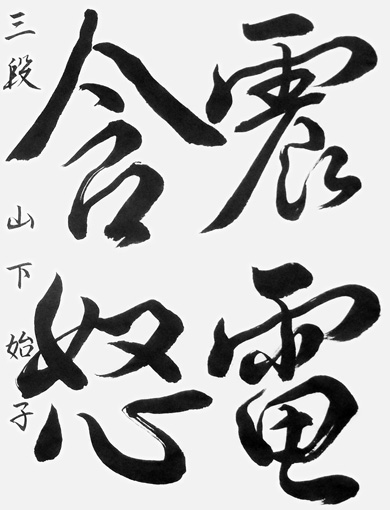 震電
含怒
三段 山下始子